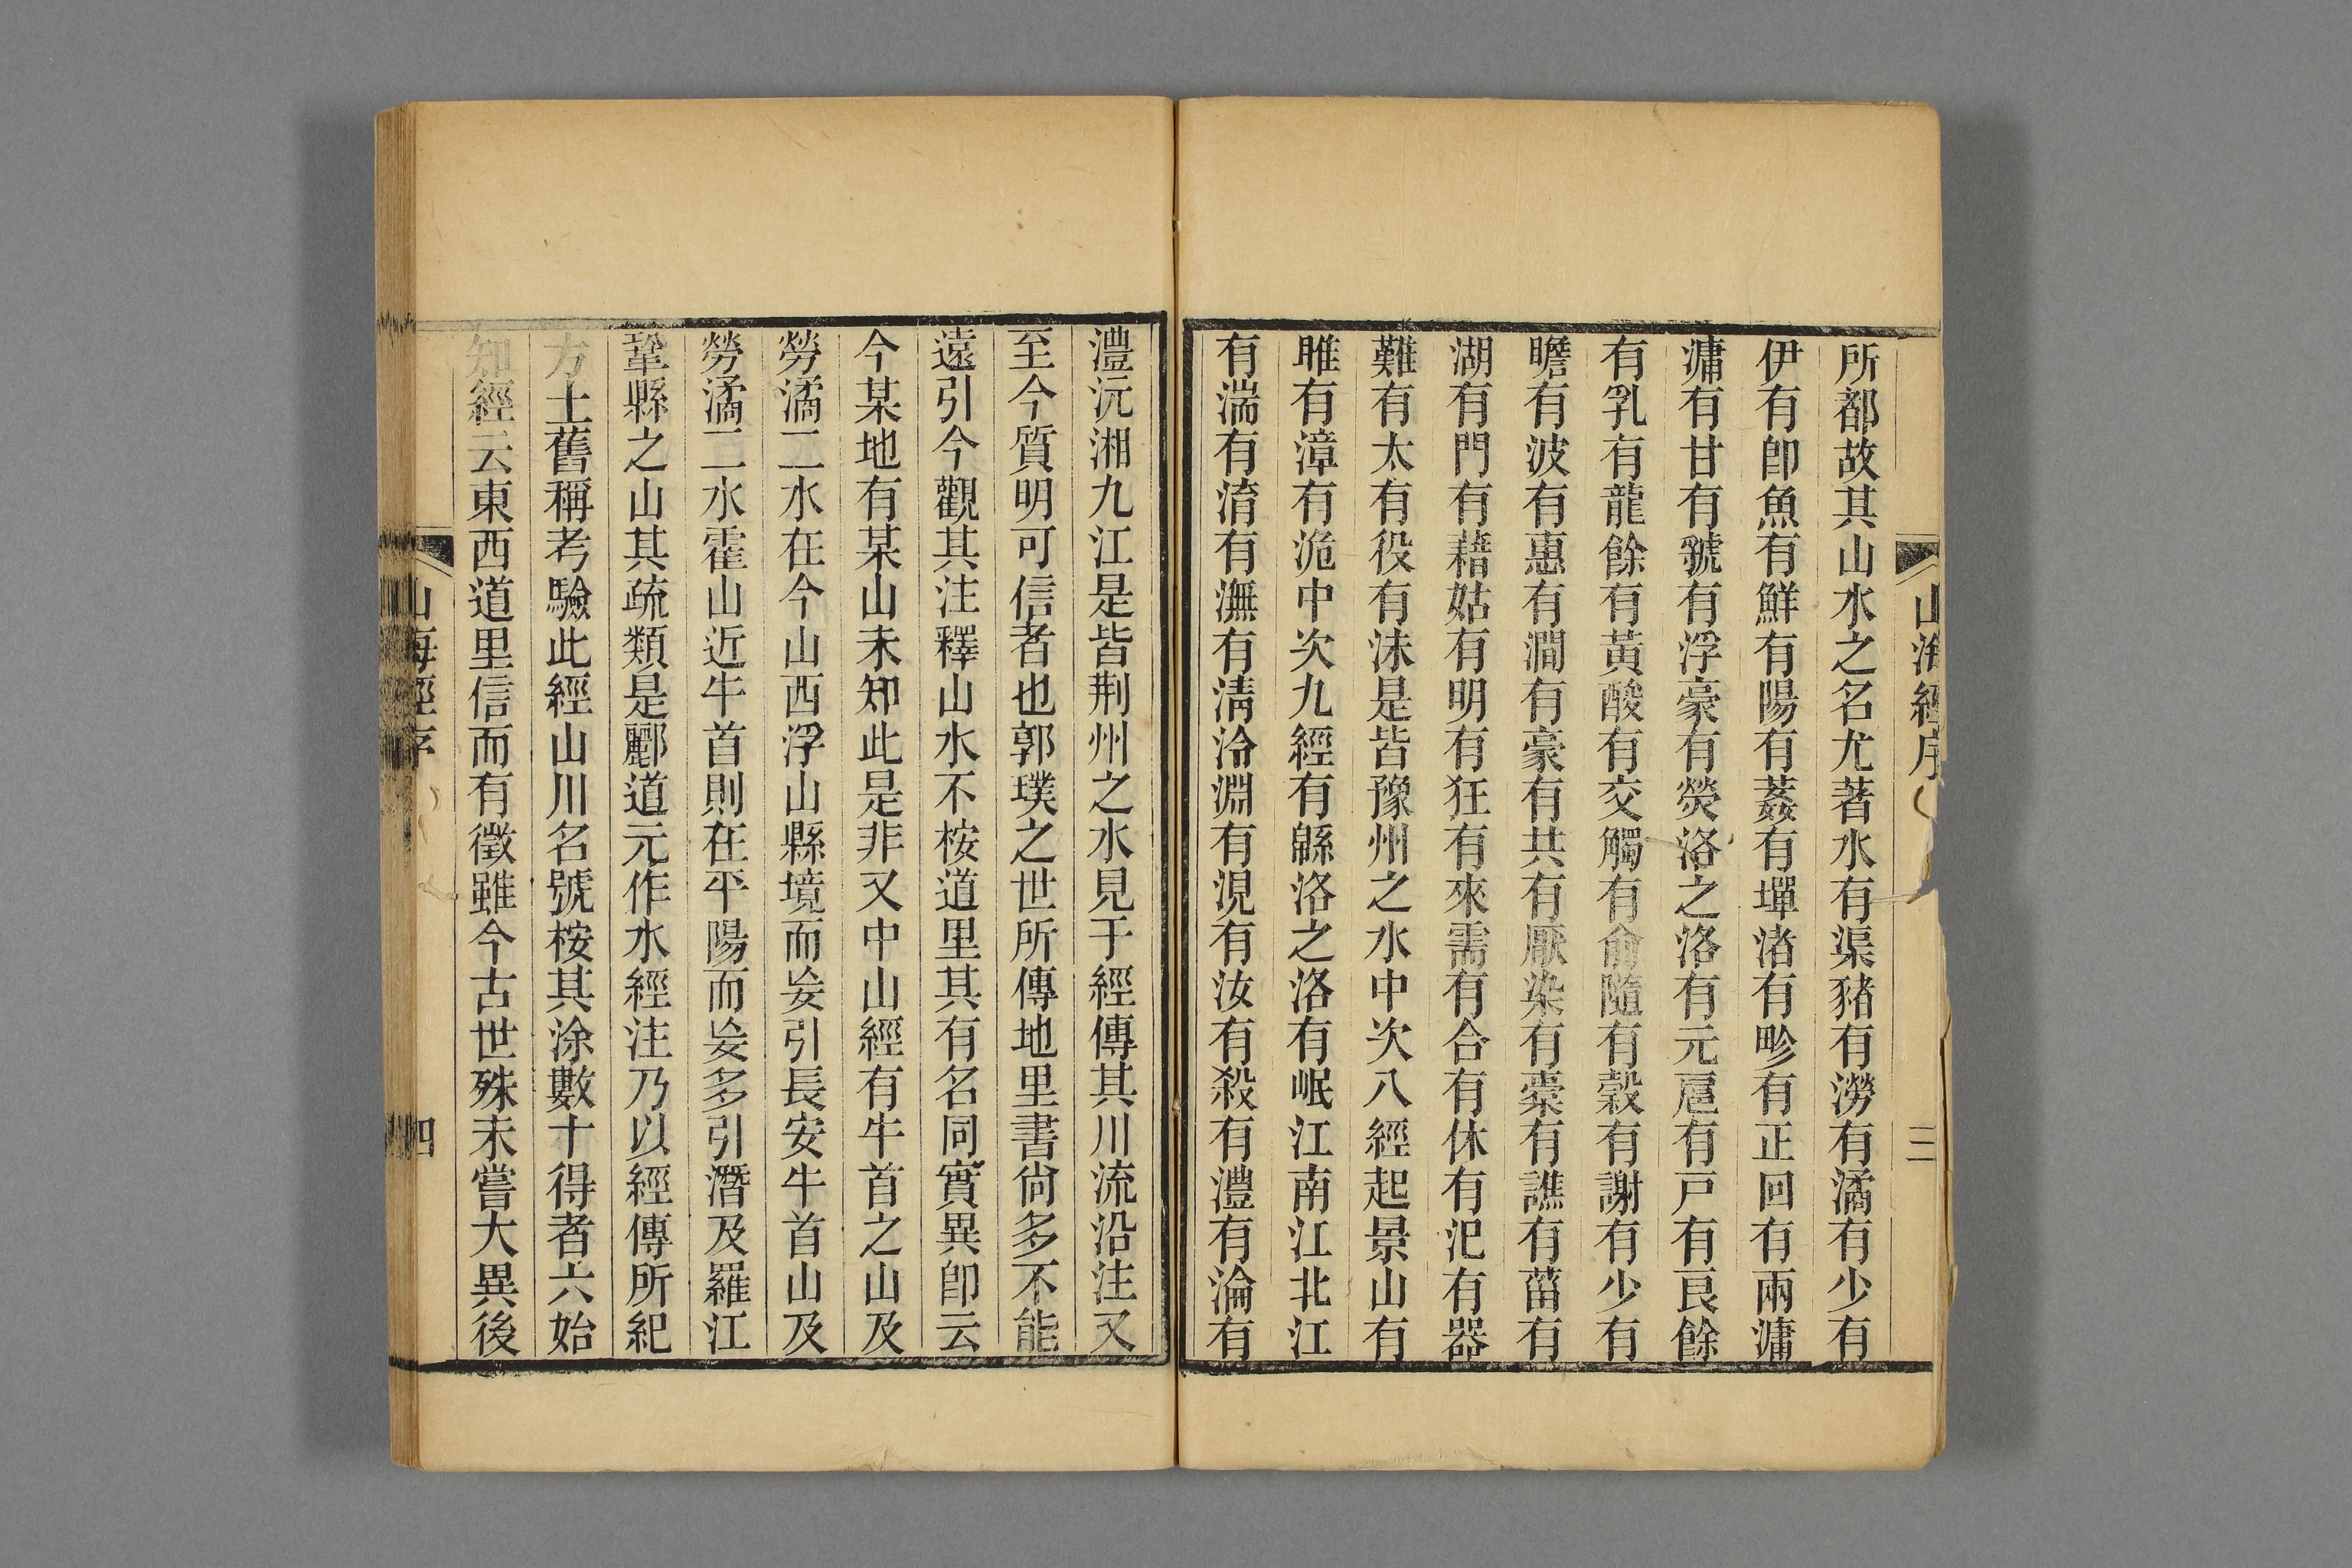 山海經序
三
所都故其山水之名尤著水有渠豬有澇有潏有少有
伊有卽魚有鮮有陽有葌有墠渚有畛有正回有兩滽
滽有甘有虢有浮豪有熒洛之洛有元扈有戸有良餘
有乳有龍餘有黃酸有交觸有俞隨有穀有謝有少有
瞻有波有惠有澗有豪有共有厭染有棗有譙有菑有
湖有門有藉姑有明有狂有來需有合有休有汜有器
難有太有役有沬是皆豫州之水中次八經起景山有
雎有漳有洈中次九經有緜洛之洛有岷江南江北江
有湍有淯有潕有淸泠淵有涀有汝有殺有澧有淪有
澧沅湘九江是皆荆州之水見于經傳其川流沿注又
至今質明可信者也郭璞之世所傳地里書尙多不能
遠引今觀其注釋山水不桉道里其有名同實異卽云
今某地有某山未知此是非又中山經有牛首之山及
勞潏二水在今山西浮山縣境而妄引長安牛首山及
勞潏二水霍山近牛首則在平陽而妄多引潛及羅江
鞏縣之山其疏類是酈道元作水經注乃以經傳所紀
方土舊稱考驗此經山川名號桉其涂數十得者六始
知經云東西道里信而有徵雖今古世殊未嘗大異後
山海經序
四